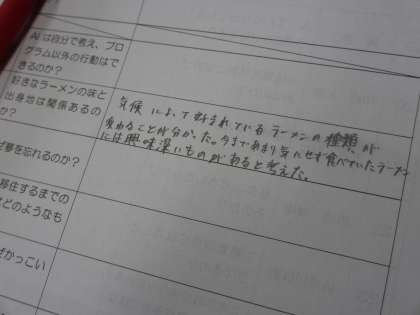 AIは自分で考え、プロ
グラム以外の行動はで
きるのか?
好きなラーメンの味と
出身地は関係あるの
か?
気候によって好まれているラーメンの種類が
変わることが分かった。今まであまり気にせず食べていたラーメン
には興味深いものがあると考えた。
ぜ夢を忘れるのか?
移住するまでの
はどのようなも
ぜかっこい